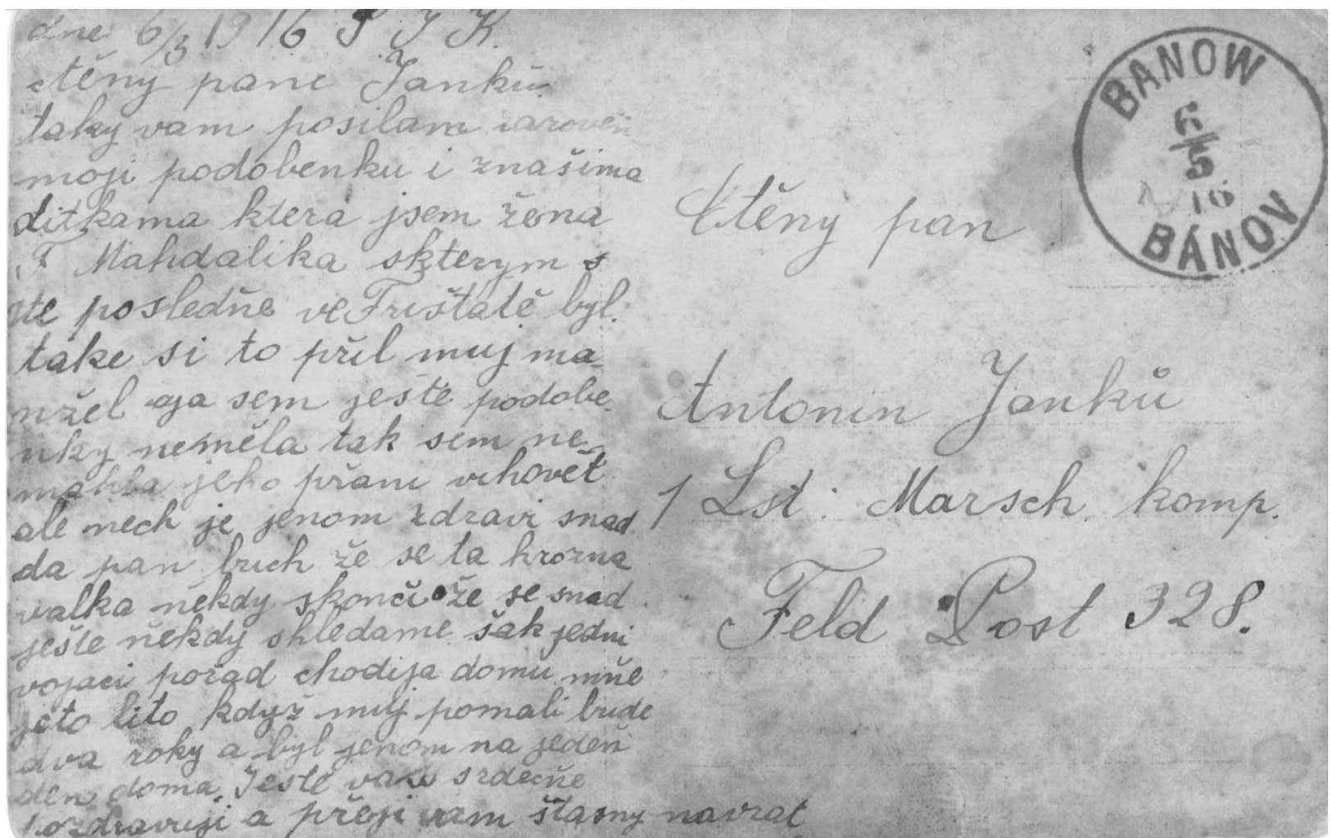 dne 6/5 1916 P J K.
ctěny pane Janků
taky vam posilam zaroveň
moji podobenku i znašima
ditkama ktera jsem žena
F Mahdalika skterym s
te posledňe ve Frištatě byl.
take si to přil muj ma
nžel aja sem ješte podobe
nky neměla tak sem ne
mahla jeho přani vihovět
ale nech je jenom zdravi snad
da pan buch že se ta hrozna
valka někdy skonči že se snad
ješte někdy shledame šak jedni
vojaci pořad chodija domu mňe
jeto lito když muj pomali bude
dva roky a byl jenom na jeden
den doma, Ješte vas srdečne
pozdravuji a přeji vam štasny navrat
BANOW
6/5
16
BÁNOV
Ctěny pan
Antonin Janků
1 Lst. Marsch. komp.
Feld Post 328.